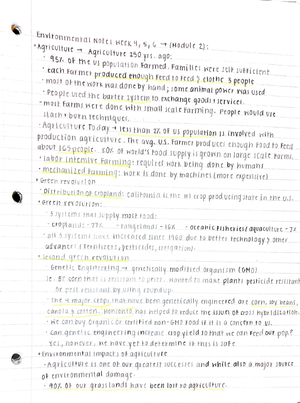 Environmental Notes Week 4, 5, 6 → (Module 2):
• Agriculture → Agriculture 250 yrs. ago:
- 95% of the US population farmed. Families were self sufficient
- each farmer produced enough feed to feed & clothe 3 people
- most of the work was done by hand; some animal power was used
- People used the barter system to exchange goods & services.
- most farms were done with small scale farming. People would use
slash & burn techniques.
- Agriculture Today → less than 2% of US population is involved with
production agriculture. The avg. U.S. Farmer produces enough food to feed
about 165 people. 80% of world's food supply is grown on large scale farms.
- Labor Intensive Farming: required work being done by humans
- mechanized farming: work is done by machines (more expensive)
• Green revolution
- Distribution of cropland: California is the #1 crop producing state in the U.S.
• Green revolution:
- 3 systems that supply most food:
- croplands - 77% - rangelands - 16% - oceanic fisheries/aquaculture - 7%
- all 3 systems have increased since 1960 due to better technology & other
advances (fertilizers, pesticides, irrigation).
• Second green revolution
- Genetic Engineering → genetically modified organism (GMO)
- The 4 major crops that have been genetically engineered are corn, soy beans,
canola & cotton. Monsanto has helped to reduce the issues of most hybridization.
- We can buy organic or certified non-GMO food if it is a concern to us.
- Can genetic engineering increase crop yield so that we can feed our pop?
Yes, however, we have yet to determine if this is safe
• Environmental impacts of agriculture
- Agriculture is one of our greatest successes and while also a major source
of environmental damage.
- 90% of our grasslands have been lost to agriculture.